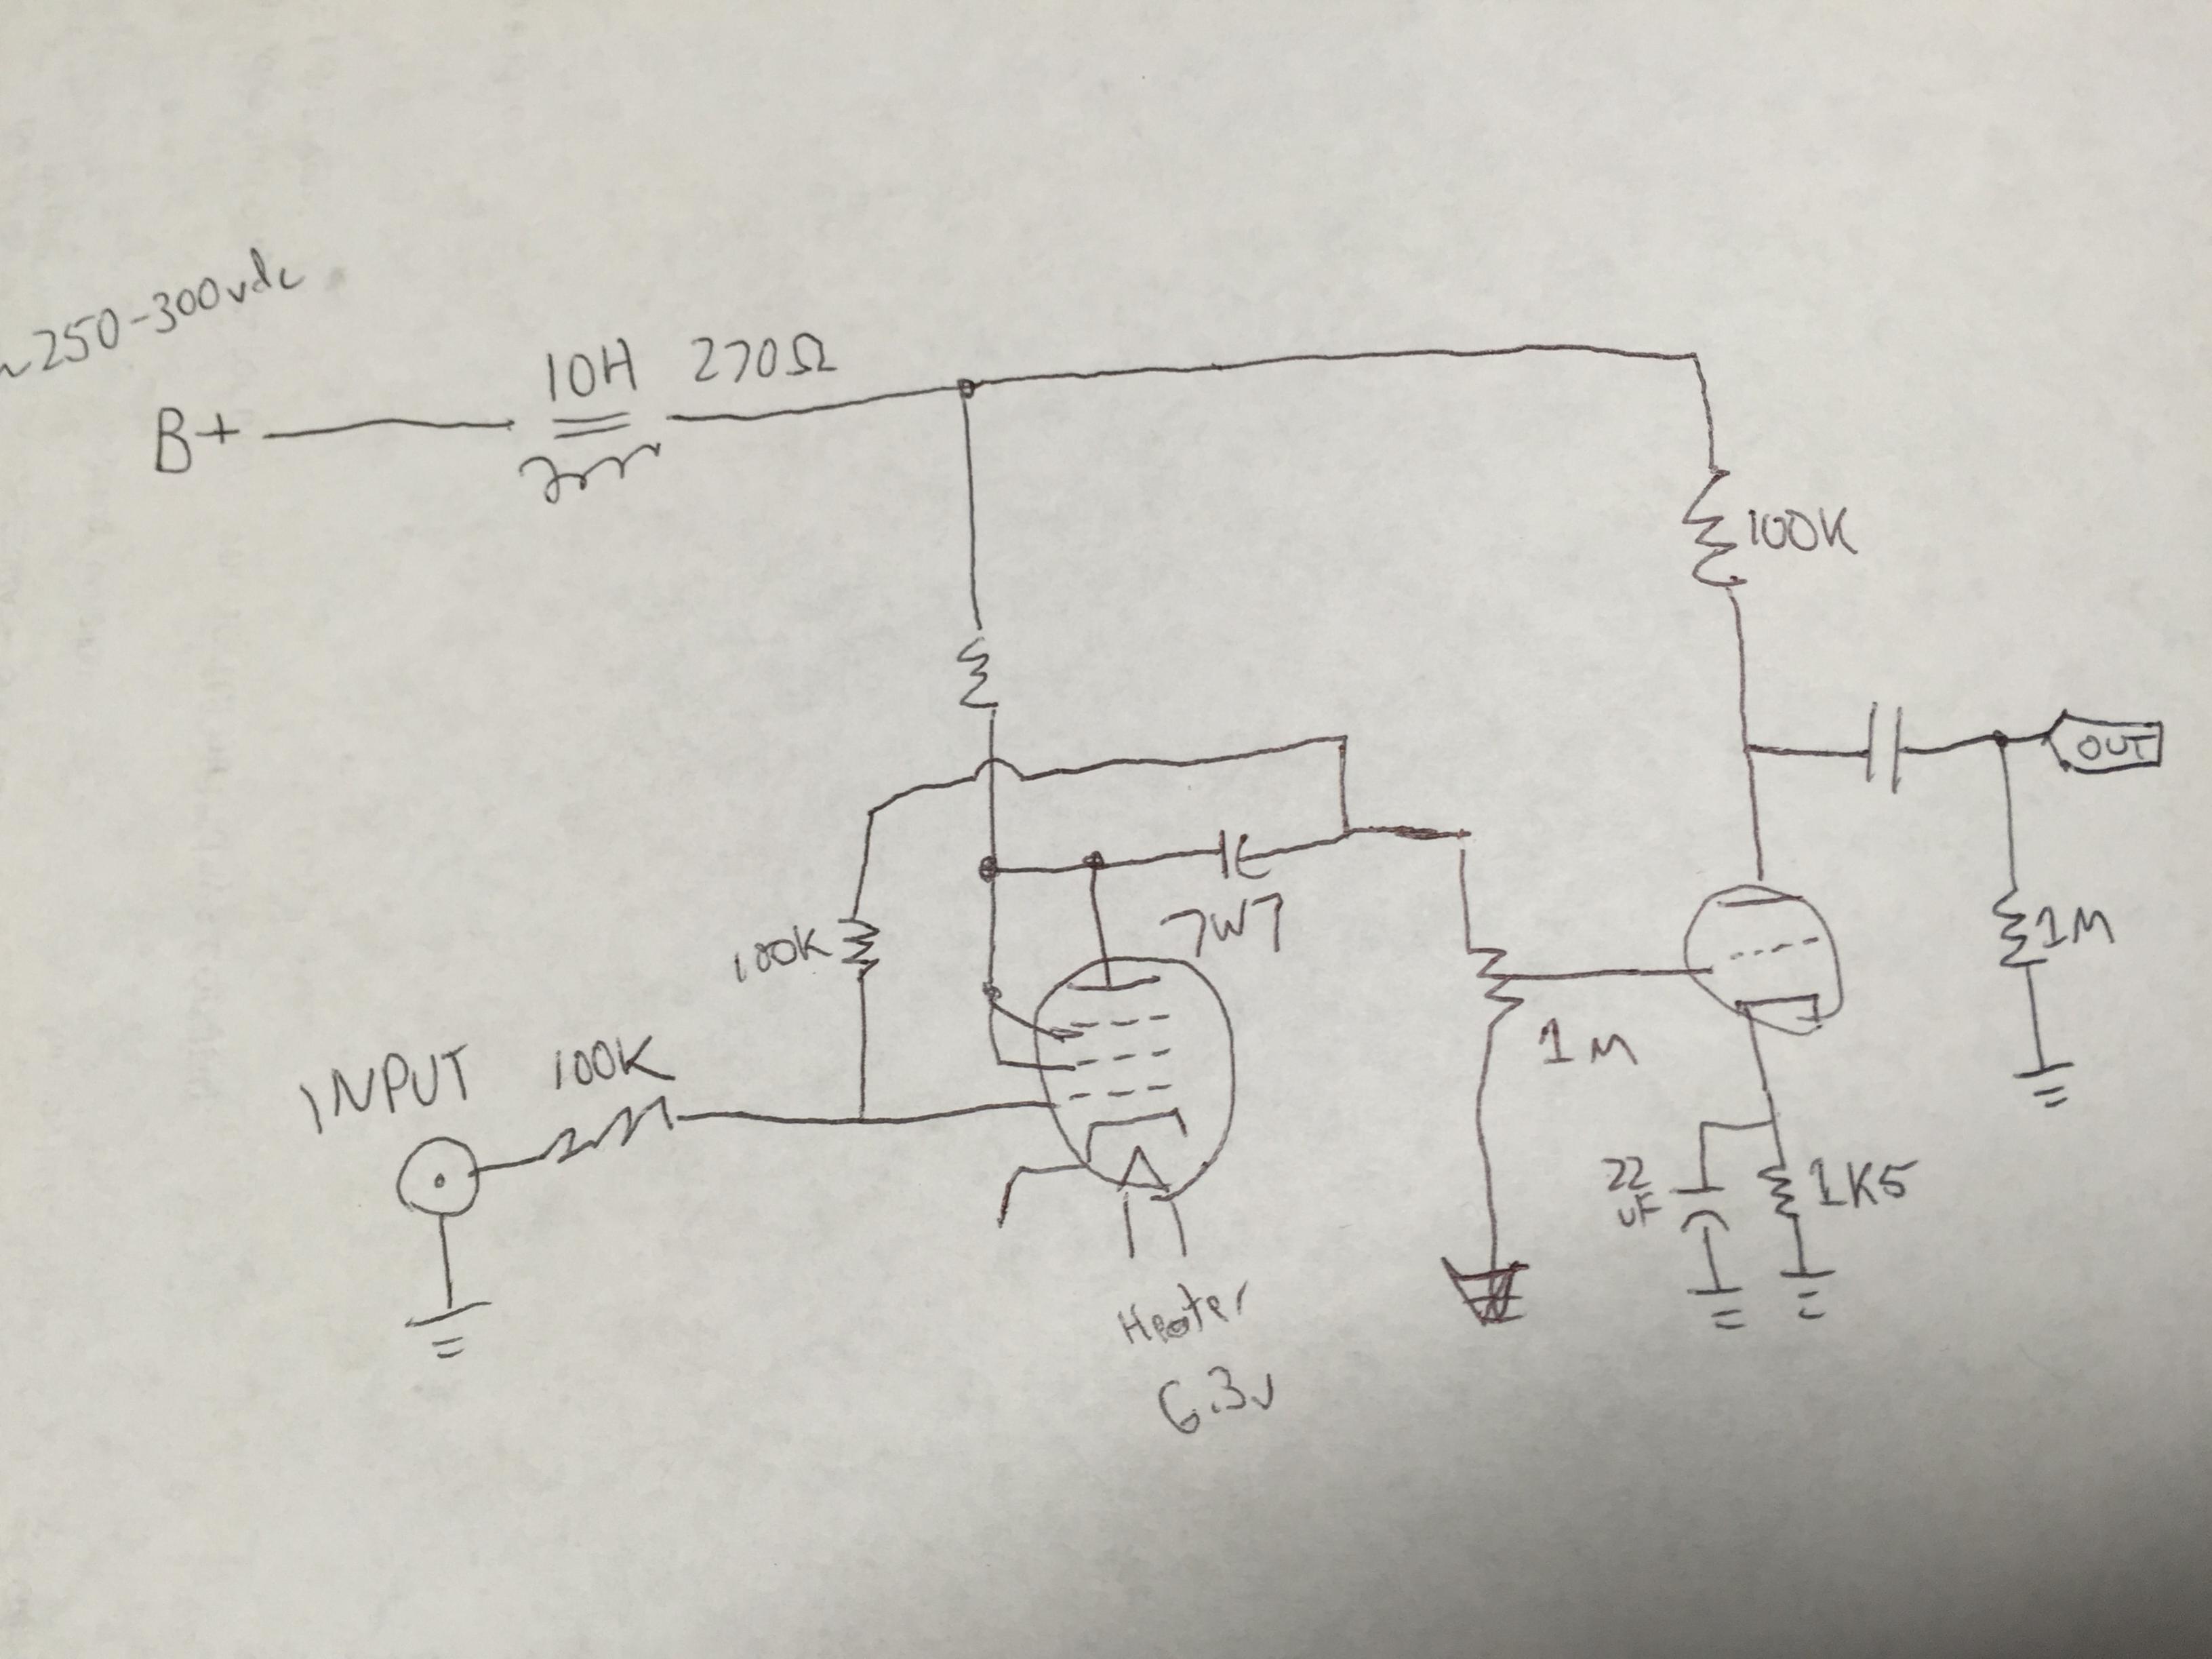 ~250-300vdc
10H 270Ω
B+
100K
OUT
7W7
100K
1M
INPUT 100K
1M
22
uF
1K5
Heater
6.3v